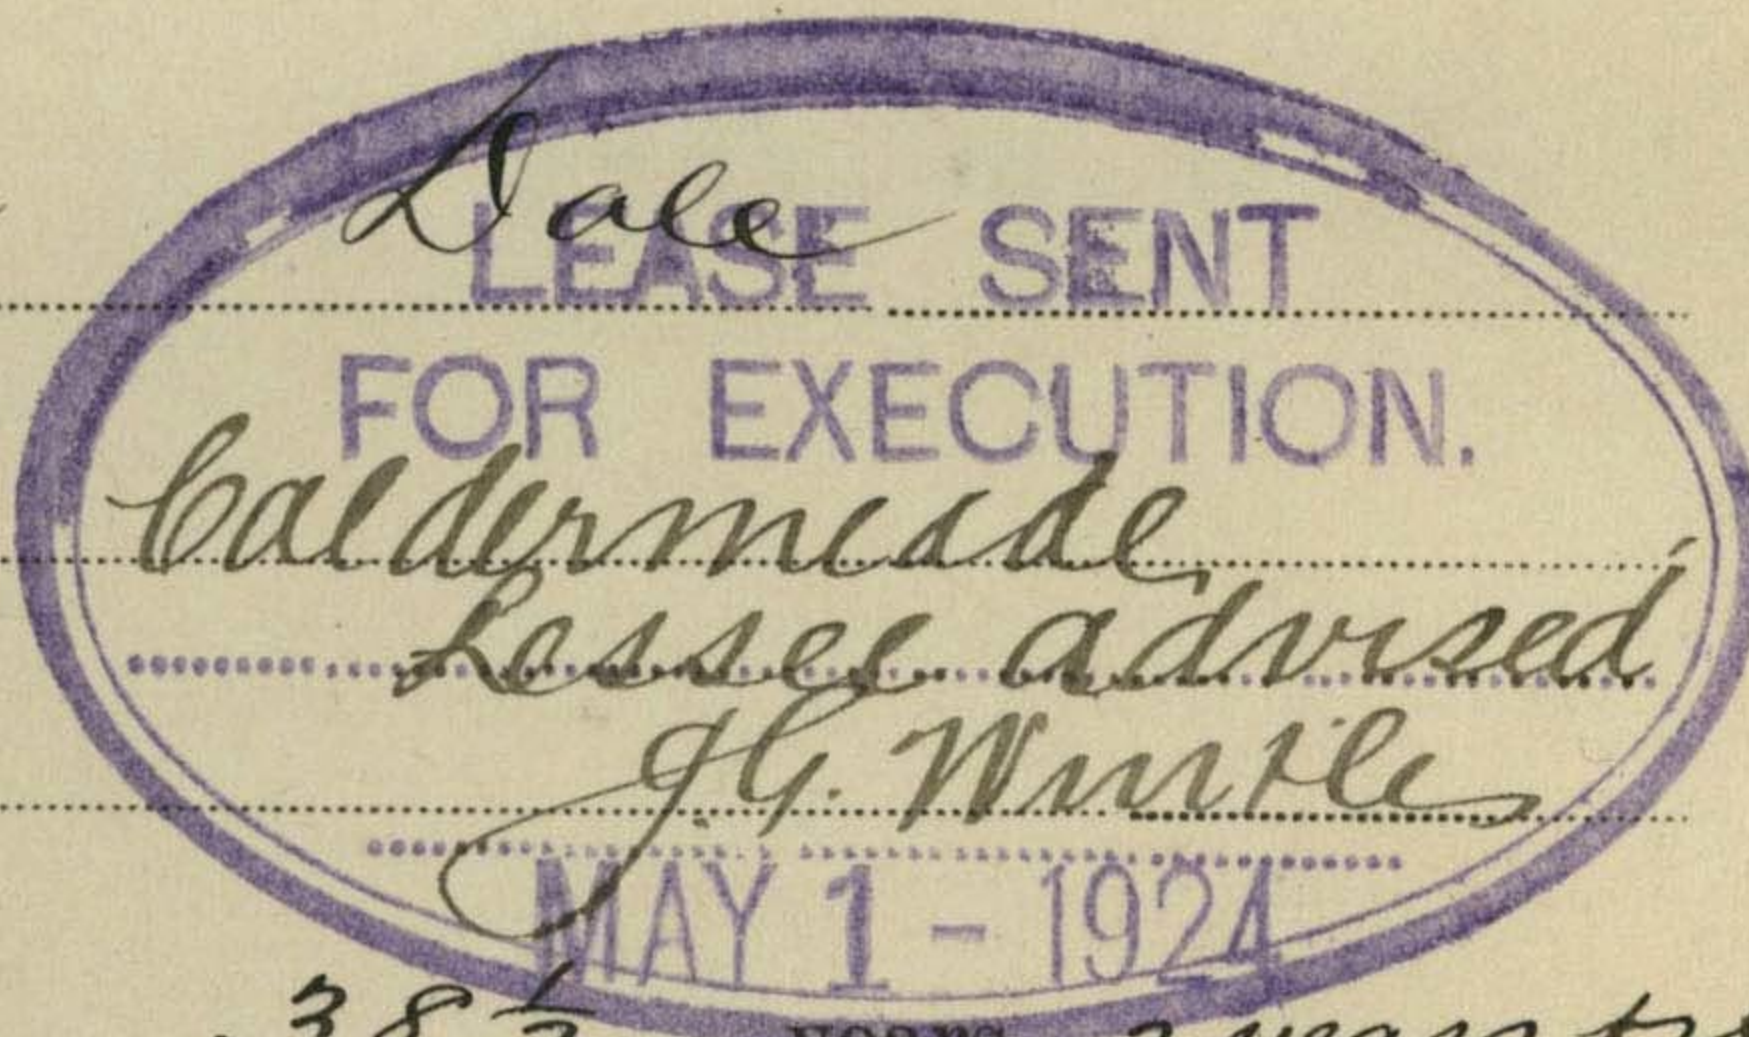 Dale
LEASE SENT
FOR EXECUTION.
Caldermeade
Lessee advised
MAY 1 - 1924
38 ½ years